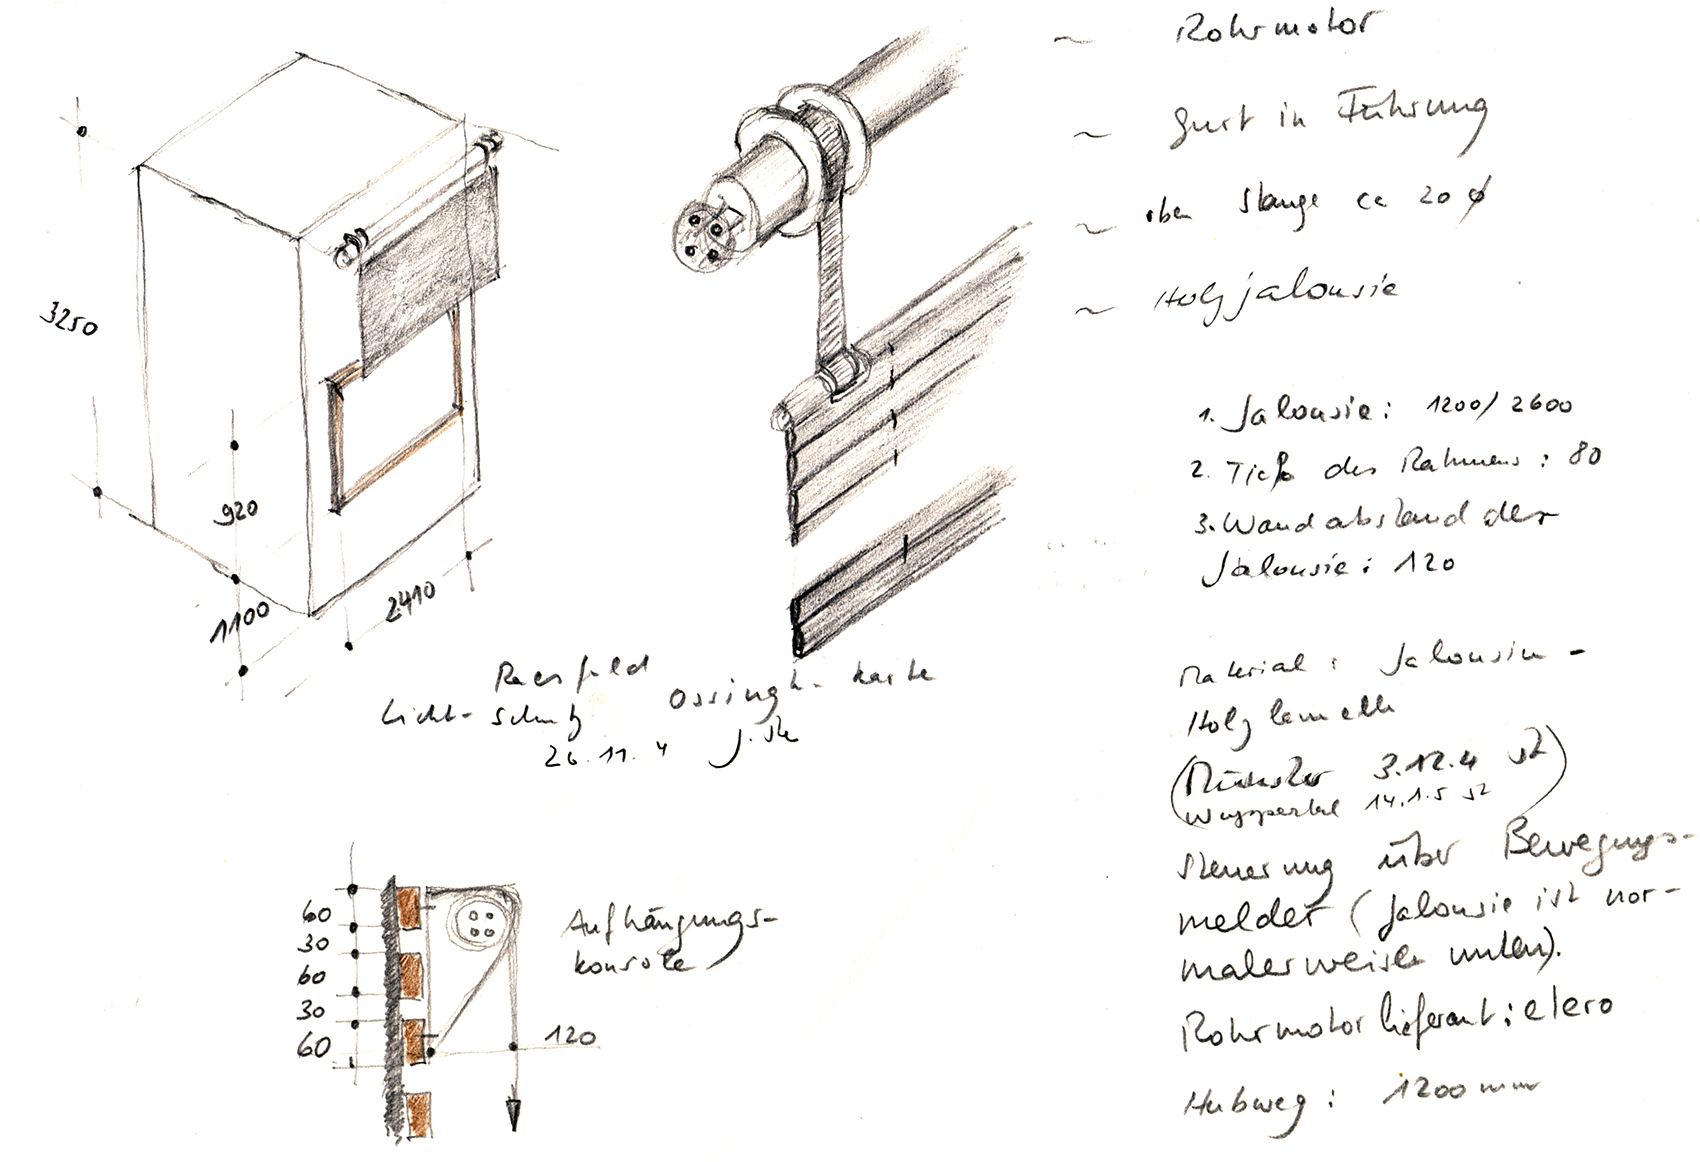 ~ Rohrmotor
~ Gurt in Führung
~ oben Stange ca 20 ø
~ Holzjalousie
1. Jalousie: 1200/2600
2. Tiefe des Rahmens: 80
3. Wandabstand der
Jalousie: 120
3250
920
1100
2410
Raesfeld
Licht-Schutz Ossingh-karte
26.11.4
Material: Jalousien-
Holzlamelle
(Münster 3.12.4
Wuppertal 14.1.5)
Steuerung über Bewegungs-
melder (Jalousie ist nor-
malerweise unten).
Rohrmotorlieferant: elero
Hubweg: 1200mm
60
30
60
30
60
120
Aufhängungs-
konsole